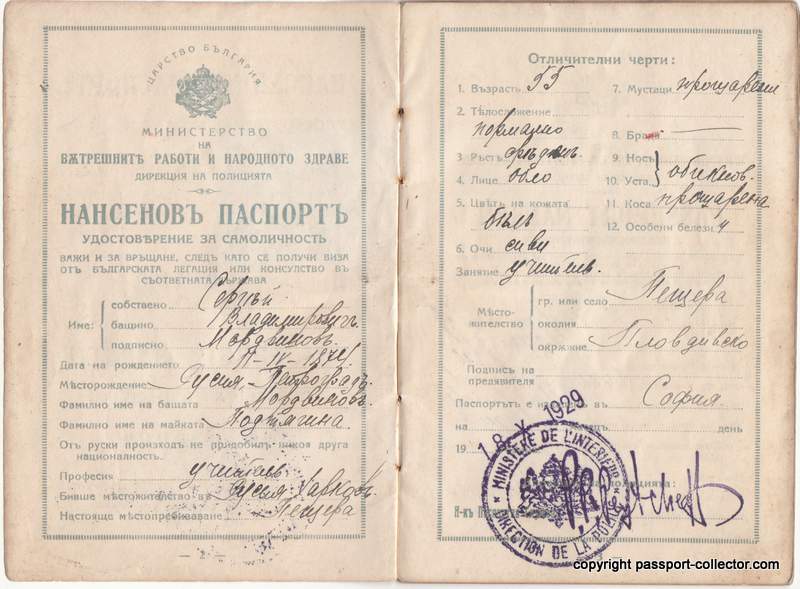 ЦАРСТВО БЪЛГАРИЯ
МИНИСТЕРСТВО
НА
ВѪТРЕШНИТѢ РАБОТИ И НАРОДНОТО ЗДРАВЕ
ДИРЕКЦИЯ НА ПОЛИЦИЯТА
НАНСЕНОВЪ ПАСПОРТЪ
УДОСТОВѢРЕНИЕ ЗА САМОЛИЧНОСТЬ
ВАЖИ И ЗА ВРЪЩАНЕ, СЛЕДЪ КАТО СЕ ПОЛУЧИ ВИЗА
ОТЪ БЪЛГАРСКАТА ЛЕГАЦИЯ ИЛИ КОНСУЛСТВО ВЪ
СЪОТВЕТНАТА ДЪРЖАВА
Име: собствено Сергѣй
бащино Владимировичъ
подписно Мордвиновъ
Дата на рождението: 11-IV-1874
Мѣсторождение Русия - Петроградъ
Фамилно име на бащата Мордвиновъ
Фамилно име на майката
Отъ руски произходъ не придобилъ никоя друга
националность.
Професия учитель
Бивше мѣстожителство въ Русия Харковъ
Настояще мѣстопребиваване Пещера
— 2 —
Отличителни черти:
1. Възрасть 55
2. Тѣлосложение
нормално
3. Ръстъ срѣденъ
4. Лице обло
5. Цвѣтъ на кожата
бѣлъ
6. Очи сиви
7. Мустаци прошарени
8. Брада —
9. Носъ
10. Уста обикнов.
11. Коса прошарена
12. Особени белези
Занятие учитель
Мѣсто-жителство гр. или село Пещера
околия
окрѫжие Пловдивско
Подпись на
предявителя
Паспортътъ е въ София
месецъ день
19
18 X 1929
MINISTÈRE DE L'INTÉRIEUR
DIRECTION DE LA POLICE
copyright passport-collector.com